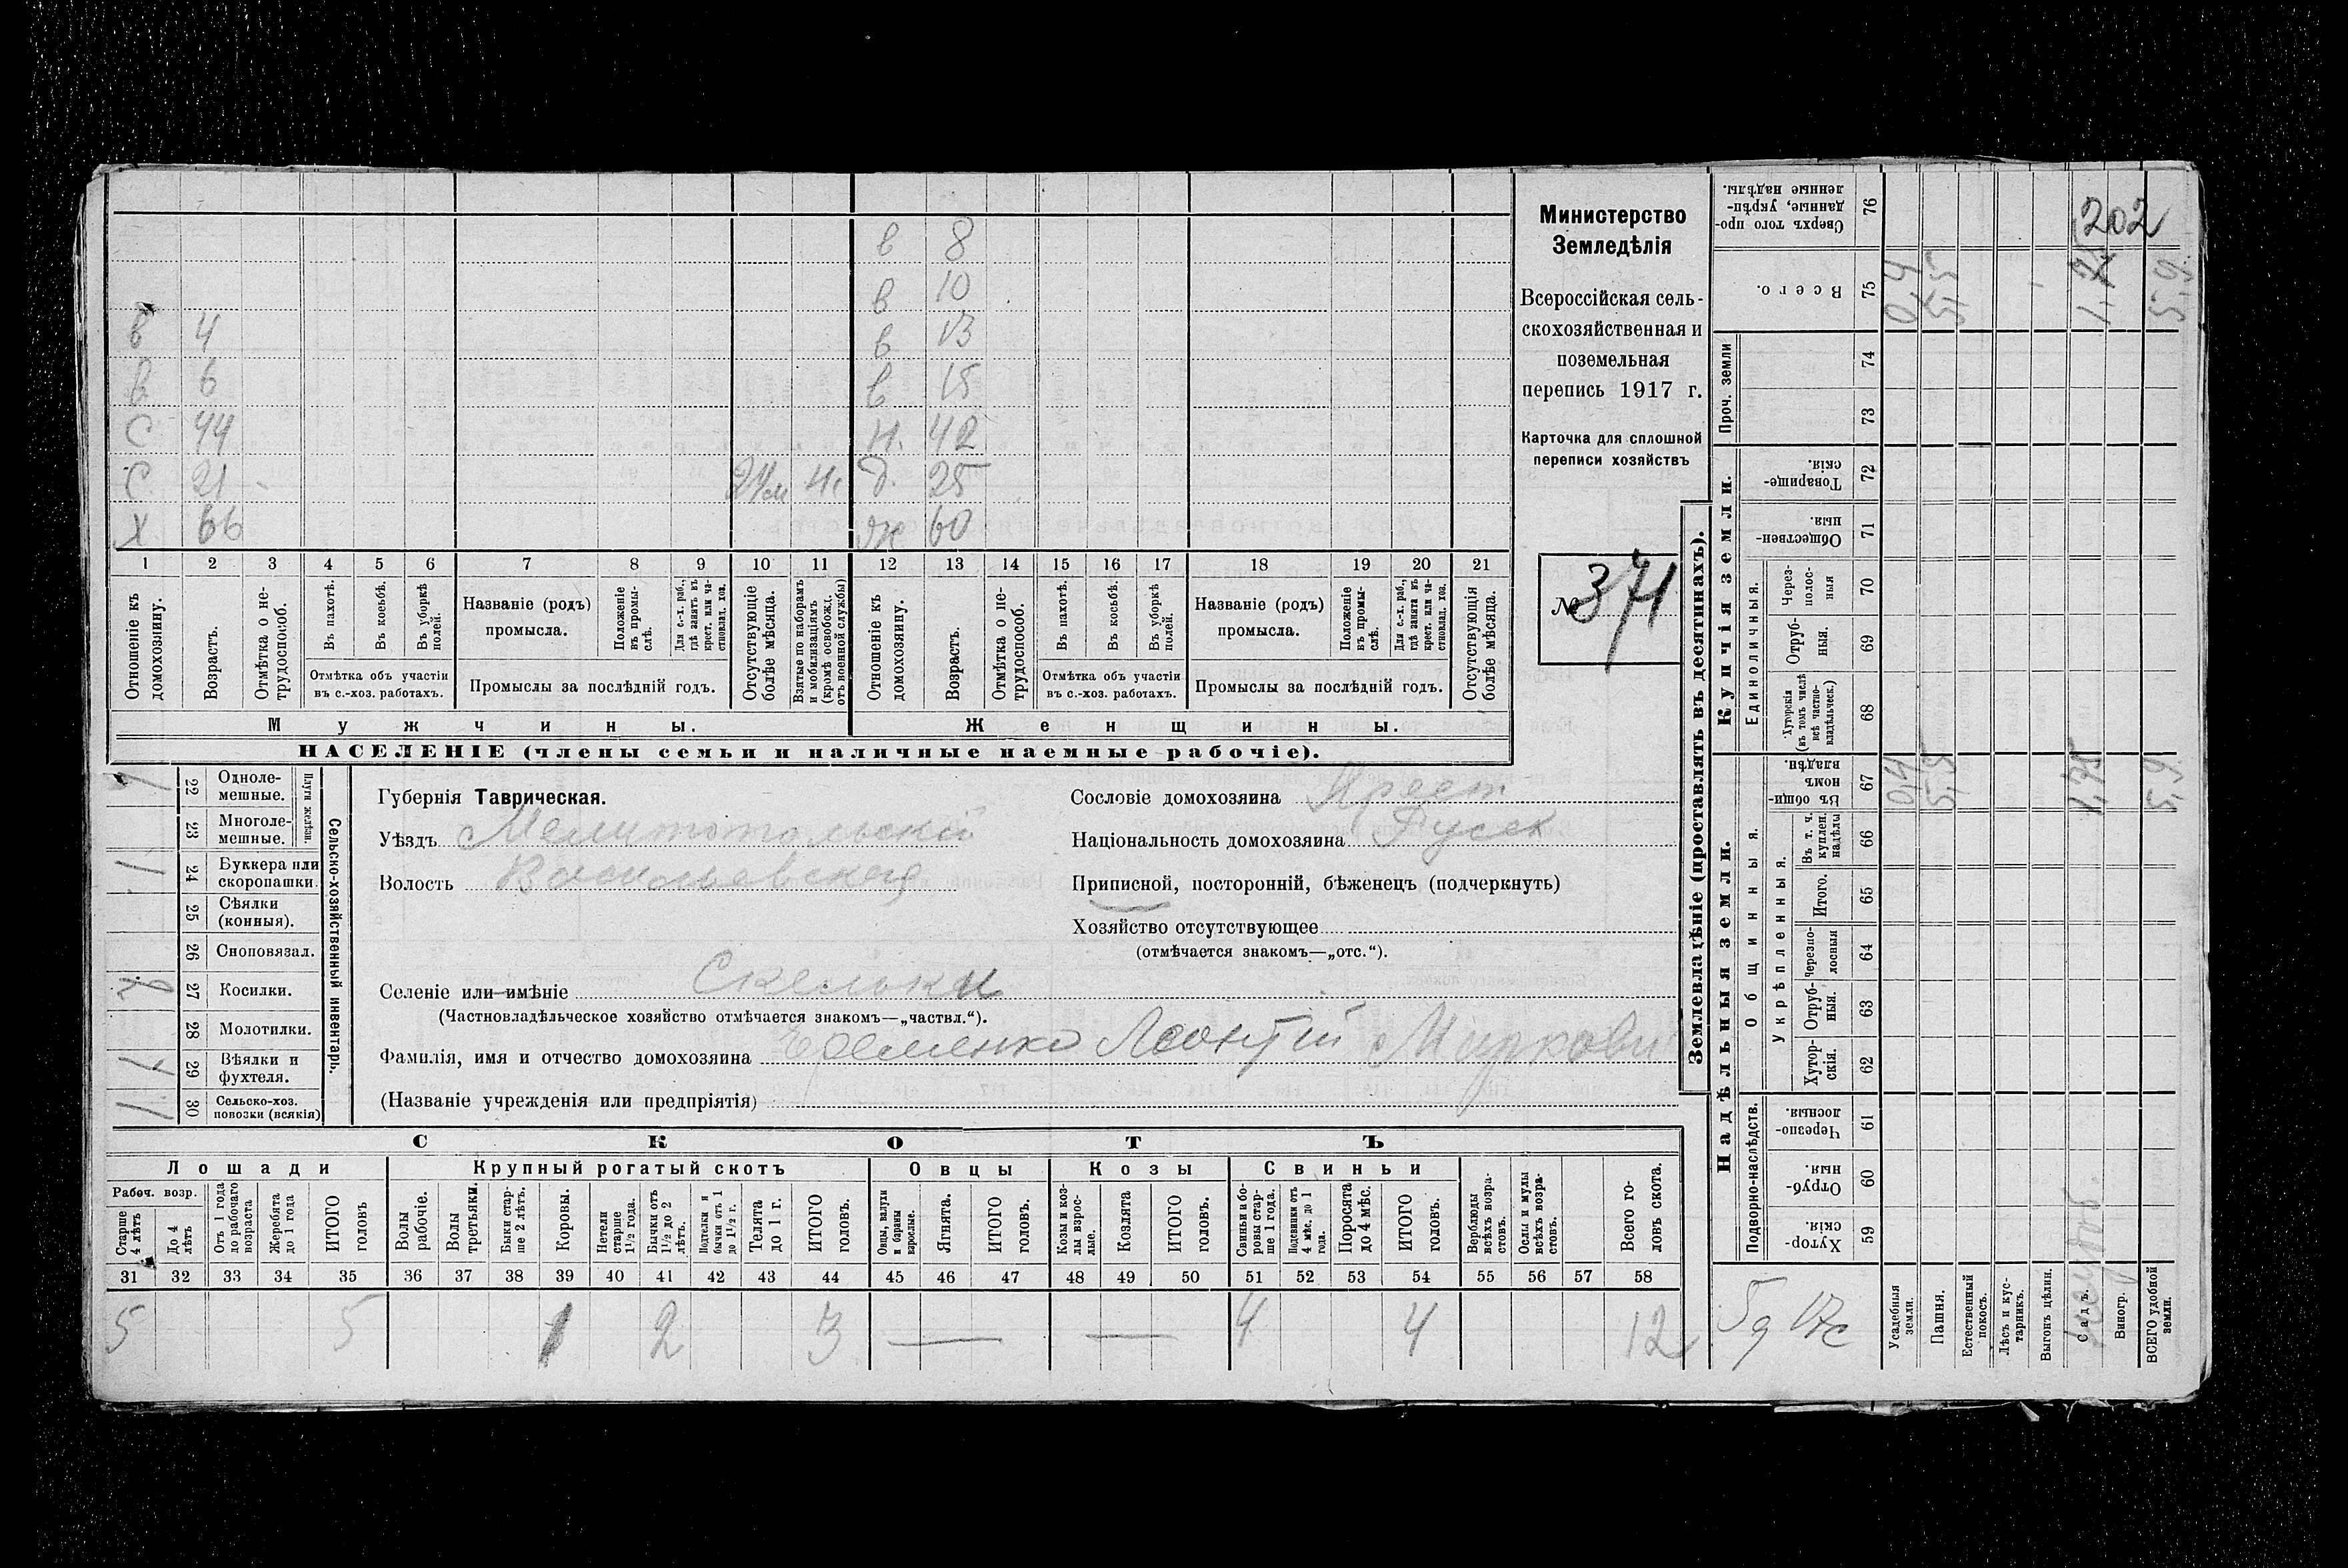 202
Министерство
Земледѣлія
Всероссійская сель-
скохозяйственная и
поземельная
перепись 1917 г.
Карточка для сплошной
переписи хозяйствъ
№ 371
в 8
в 10
в 4 в 13
в 6 в 15
с 44 н. 42
с 21 д. 25
х 66 ж 60
1 2 3 4 5 6 7 8 9 10 11 12 13 14 15 16 17 18 19 20 21
Отношеніе къ домохозяину.
Возрастъ.
Отмѣтка о не-трудоспособ.
Въ пахотѣ.
Въ косьбѣ.
Въ уборкѣ полей.
Отмѣтка объ участіи въ с.-хоз. работахъ.
Названіе (родъ) промысла.
Положеніе въ промы-слѣ.
Для с.-х. раб., гдѣ занятъ въ крест. или ча-стновлад. хоз.
Промыслы за послѣдній годъ.
Отсутствующіе болѣе мѣсяца.
Взятые по наборамъ и мобилизаціямъ (кромѣ освобожд. отъ военной службы)
Отношеніе къ домохозяину.
Возрастъ.
Отмѣтка о не-трудоспособ.
Въ пахотѣ.
Въ косьбѣ.
Въ уборкѣ полей.
Отмѣтка объ участіи въ с.-хоз. работахъ.
Названіе (родъ) промысла.
Положеніе въ промы-слѣ.
Для с.-х. раб., гдѣ занята въ крест. или ча-стновлад. хоз.
Промыслы за послѣдній годъ.
Отсутствующія болѣе мѣсяца.
Мужчины. Женщины.
НАСЕЛЕНІЕ (члены семьи и наличные наемные рабочіе).
Сельско-хозяйственный инвентарь.
Плуги желѣзн.
22 Одноле-мешные. 1
23 Многоле-мешные.
24 Буккера или скоропашки. 1
25 Сѣялки (конныя).
26 Сноповязал.
27 Косилки.
28 Молотилки.
29 Вѣялки и фухтеля. 1
30 Сельско-хоз. повозки (всякія) 1
Губернія Таврическая.
Уѣздъ Мелитопольскій
Волость Васильевская
Сословіе домохозяина Крест
Національность домохозяина Русск
Приписной, посторонній, бѣженецъ (подчеркнуть)
Хозяйство отсутствующее
(отмѣчается знакомъ—„отс.“).
Селеніе или имѣніе Скельки
(Частновладѣльческое хозяйство отмѣчается знакомъ—„частвл.“).
Фамилія, имя и отчество домохозяина Леонтій
(Названіе учрежденія или предпріятія)
СКОТЪ
Лошади Крупный рогатый скотъ Овцы Козы Свиньи
Рабоч. возр.
Старше 4 лѣтъ
До 4 лѣтъ
Отъ 1 года до рабочаго возраста
Жеребята до 1 года
ИТОГО головъ
Волы рабочіе.
Волы третьяки.
Быки стар-ше 2 лѣтъ.
Коровы.
Нетели старше 1½ года.
Бычки отъ 1½ до 2 лѣтъ.
Подтелки и бычки отъ 1 до 1½ г.
Телята до 1 г.
ИТОГО головъ.
Овцы, валухи и бараны взрослые.
Ягнята.
ИТОГО головъ.
Козы и коз-лы взрос-лые.
Козлята
ИТОГО головъ.
Свиньи и бо-ровы стар-ше 1 года.
Подсвинки отъ 4 мѣс. до 1 года.
Поросята до 4 мѣс.
ИТОГО головъ.
Верблюды всѣхъ возра-стовъ.
Ослы и мулы всѣхъ возра-стовъ.
Всего го-ловъ скота.
31 32 33 34 35 36 37 38 39 40 41 42 43 44 45 46 47 48 49 50 51 52 53 54 55 56 57 58
5 5 1 2 3 — — 4 4 12
Землевладѣніе (проставлять въ десятинахъ).
Сверхъ того про-данные, укрѣп-ленные надѣлы. 76
Всего. 75 0,4
Проч. земли 74
73
Купчія земли.
Товарище-скія. 72
Обществен-ныя. 71
Единоличныя.
Через-полос-ныя 70
Отруб-ныя. 69
Хуторскія (въ томъ числѣ всѣ частно-владѣльческ.) 68
Надѣльныя земли.
Общинныя.
Въ общин-номъ владѣн. 67 0,4
Укрѣпленныя.
Въ т. ч. куплен. надѣлы 66
Итого. 65
Черезпо-лосныя 64
Отруб-ныя. 63
Хутор-скія. 62
Подворно-наслѣдств.
Черезпо-лосныя. 61
Отруб-ныя. 60
Хутор-скія. 59
5д 17с
Усадебныя земли.
Пашня.
Естественный покосъ.
Лѣсъ и кус-тарникъ.
Выгонъ цѣлин.
Садъ.
Виногр.
ВСЕГО удобной земли.